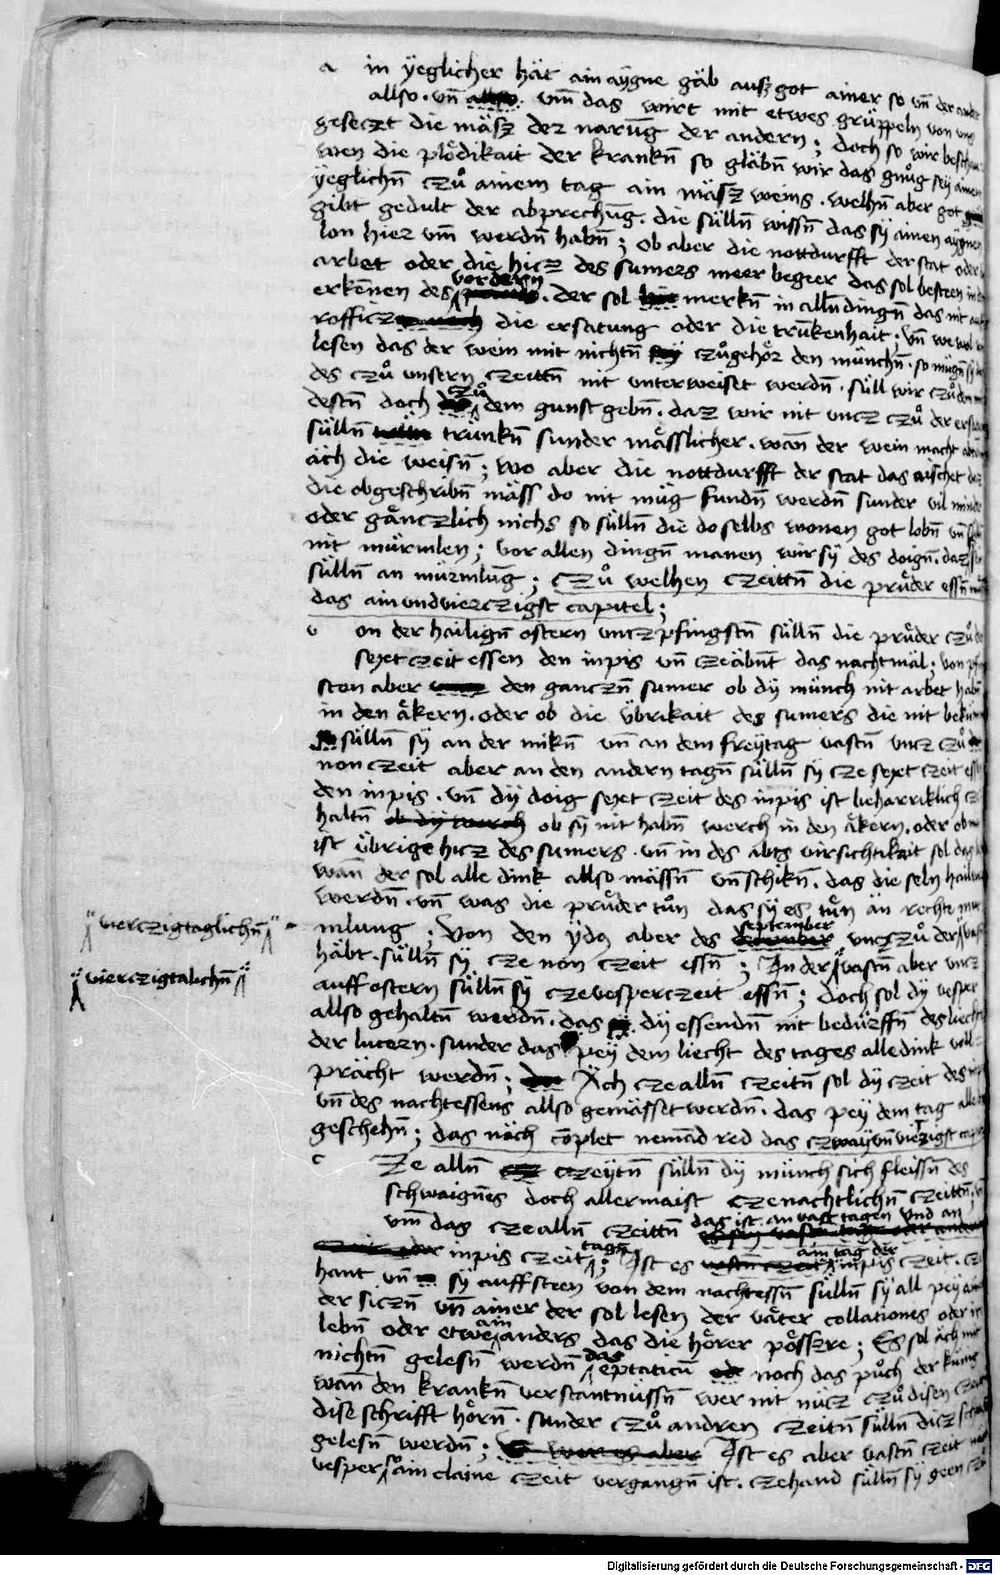 a in ÿeglicher hät ain aÿgne gäb ausz got ainer so vn̄ der ander
allso. vn̄ allso. vm̄ das wirt mit etwes grüppeln von vns
geseczt die mäsz dez narūg der andern; doch so wir beschaw
wen die plödikait der krankn̄ so gläbn̄ wir das gnůg seÿ ainem
ÿeglichn̄ czů ainem tag ain mäsz weins. welhn̄ aber got
gibt gedult der abprechūg. die sülln̄ wissn̄ das sÿ ainen aÿgnen
lon hiez vm̄ werdn̄ habn̄; ob aber die nottdurfft der stat oder
arbet oder die hicz des sumers meer begeer das sol besteen in
erkēnen des vordern. der sol merkn̄ in alln̄ dingn̄ das nit
die ersatung oder die trunkenhait; vn̄ we wol
lesen das der wein mit nichtn̄ czůgehöz den münchn̄. so mügn̄ sÿ
des czů vnsern czeittn̄ nit vnterweiset werdn̄. süll wir czů dem
destn̄ doch czů dem gunst gebn̄. daz wir nit vncz czů der
sülln̄ trünkn̄ sunder mässlicher. wān der wein macht
äch die weisn̄; wo aber die nottdurfft der stat das aischet
die obgeschribn̄ mäss do nit müg fundn̄ werdn̄ sunder vil minder
oder gänczlich nichs so sülln̄ die do selbs wonen got lobn̄ vn̄
nit mürmlen; vor allen dingn̄ manen wir sÿ des doign̄. daz sÿ
sülln̄ an mürmlūg; Czů welhen czeittn̄ die prüder essn̄
das ainvndvierczigst capitel;
v on der hailign̄ ostern vncz pfingstn̄ sülln̄ die prüder czů
sexet czeit essen den inpis vn̄ czeäbnt das nachtmäl; von
sten aber den ganczn̄ sumer ob dÿ münch nit arbet habn̄
in den äkern. oder ob die übrikait des sumers die nit
sülln̄ sÿ an der mikn̄ vn̄ an dem freÿtag vastn̄ vncz czů
non czeit aber an den andern tagn̄ sülln̄ sÿ cze sexet czeit
den inpis. vn̄ dÿ doig sexet czeit des inpis ist beharriklich
haltn̄ ob dÿ werch ob sÿ nit habn̄ werch in den äkern. oder ob
ist übrige hicz des sumers. vn̄ in des abts virsichtikait sol das
wān der sol alle dink allso mässn̄ vn̄ schikn̄. das die seln hailsam
werdn̄. vn̄ was die prüder tůn das sÿ es tůn än rechte
vierczigtaglichn̄
mlung; Von den ÿdq aber des september vncz czů der
häbt. sülln̄ sÿ cze non czeit essn̄; In der vastn̄ aber vncz
vierczigtalichn̄
auff ostern sülln̄ sÿ czevesperczeit essn̄; doch sol dÿ vesper
allso gehaltn̄ werdn̄. das dÿ essendn̄ nit bedürffn̄ des liechts
der lucern. sunder das peÿ dem liecht des tages alledink
prächt werdn̄; Äch czealln̄ czeitn̄ sol dÿ czeit des
vn̄ des nachtessens allso gemässet werdn̄. das peÿ dem tag
geschehn̄; das näch cōplet nemād red das czwayvn̄vierzigst
c Ze alln̄ czeÿtn̄ sülln̄ dÿ münch sich fleissn̄ des
schwaignēs doch allermaist czenachtlichn̄ czeittn̄
vm̄ das czealln̄ czeittn̄ das ist. an vast tagen vnd an
inpis czeit tagn̄; Ist es ain tag der inpis czeit.
hant vn̄ sÿ auffsteen von dem nachtessn̄ sülln̄ sÿ all peÿ
der siczn̄ vn̄ ainer der sol lesen der väter collationes oder
lebn̄ oder etwe ain anders das die hörer pössre; Es sol äch
nichtn̄ gelesn̄ werdn̄ das eptaticū noch das půch der künig
wān den krankn̄ verstantnüssn̄ wer nit nücz czů disen
dise schrifft hörn̄. sunder czů andren czeitn̄ sülln̄ dicz
gelesn̄ werdn̄; wer es aber Ist es aber vastn̄ czeit
vesper so ain claine czeit vergangn̄ ist. czehand sülln̄ sÿ geen
Digitalisierung gefördert durch die Deutsche Forschungsgemeinschaft - DFG